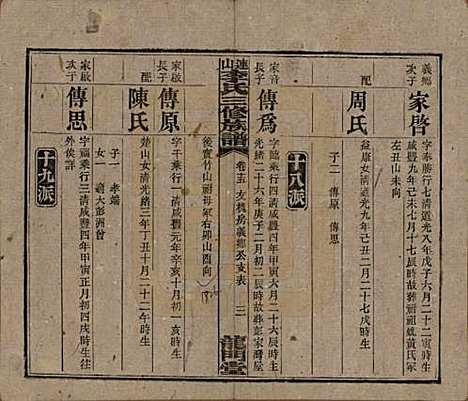 義鄉次子
家啓
字奉勝行七清道光八年戊子六月二十二寅時生
咸豐九年己未七月十七日巳時故葬禍祖媿黃氏冢
左丑山未向
配
周氏
益康女清道光九年己丑二月二十七戌時生
子二 傳原 傳思
十八派
家音長子
傳爲
字臨乘行四清咸豐四年甲寅六月二十六辰時生
光緒二十六年庚子二月初二辰時故葬彭家灣屋
連山李氏三修族譜
卷十五 友棟房義鄉公支表
三一
龍門堂
後實竹山祔母冢右卯山酉向
家啟長子
傳原
字于乘行一清咸豐元年辛亥十月初一亥時生
配
陳氏
楚山女清光緒三年丁丑十月二十二午時生
子一 孝端
女一 適大彭洲曾
家啟次子
傳思
字福乘行三清咸豐四年甲寅正月初四戌時生往
外俟詳
十九派